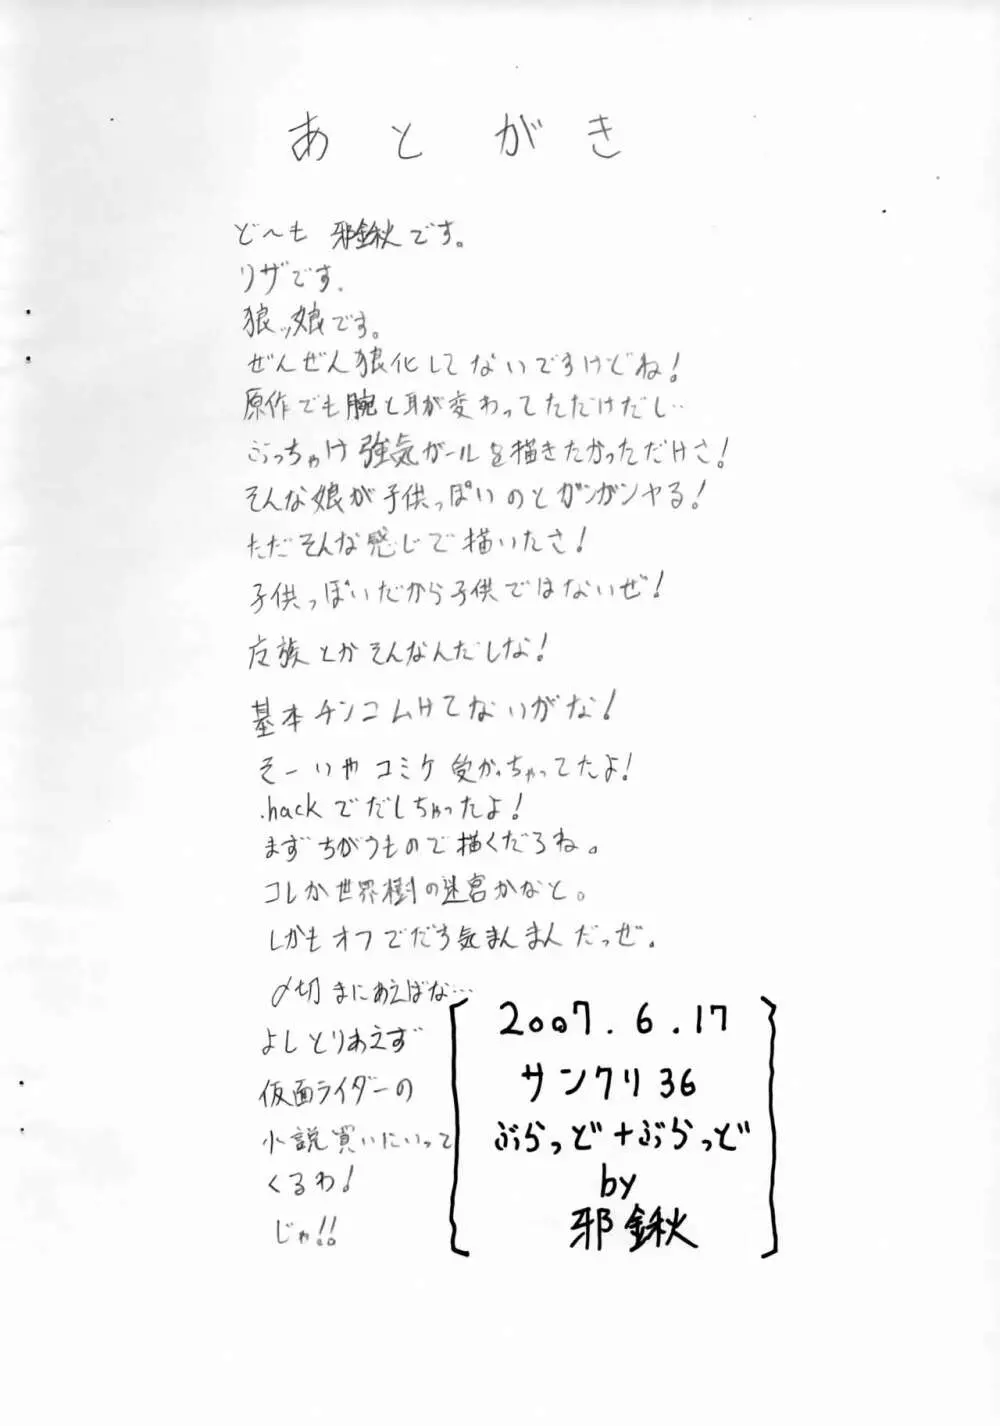 あとがき
ど〜も 邪鍬です。
リザです.
狼ッ娘です。
ぜんぜん狼化してないですけどね!
原作でも腕と耳が変わってただけだし…
ぶっちゃけ 強気ガールを描きたかっただけさ!
そんな娘が子供っぽいのとガンガンヤる!
ただそんな感じで描いたさ!
子供っぽいだから子供ではないぜ!
皮族とかそんなんだしな!
基本チンコムけてないがな!
そーいやコミケ受かっちゃってたよ!
.hackでだしちゃったよ!
まずちがうもので描くだろね。
コレか世界樹の迷宮かなと。
しかもオフでだす気まんまんだっぜ.
〆切まにあえばな…
よしとりあえず
仮面ライダーの
小説買いにいって
くるわ!
じゃ!!
2007.6.17
サンクリ36
ぶらっど+ぶらっど
by
邪鍬